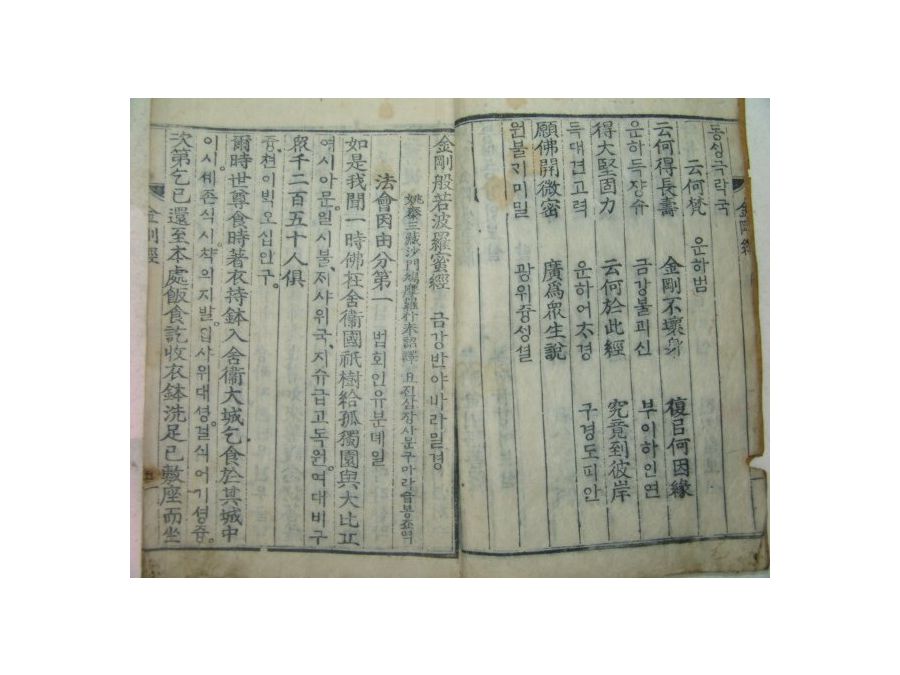 동싱극락국
云何梵 운하범
云何得長壽 金剛不壞身 復以何因緣
운하득쟝슈 금강불괴신 부이하인연
得大堅固力 云何於此經 究竟到彼岸
득대견고력 운하어太경 구경도피안
願佛開微密 廣爲衆生說
원불기미밀 광위즁성셜
金剛經
金剛般若波羅蜜經 금강반야바라밀경
姚秦三藏沙門鳩摩羅什奉詔譯 요진삼장사문구마라습봉죠역
法會因由分第一 법회인유분뎨일
如是我聞一時佛在舍衛國祇樹給孤獨園與大比丘
여시아문일시불지샤위국지슈급고독원여대비구
衆千二百五十人俱
즁쳔이빅오십인구
爾時世尊食時著衣持鉢入舍衛大城乞食於其城中
이시셰존식시착의지발입사위대셩걸식어기셩즁
次第乞已還至本處飯食訖收衣鉢洗足已敷座而坐
金剛經